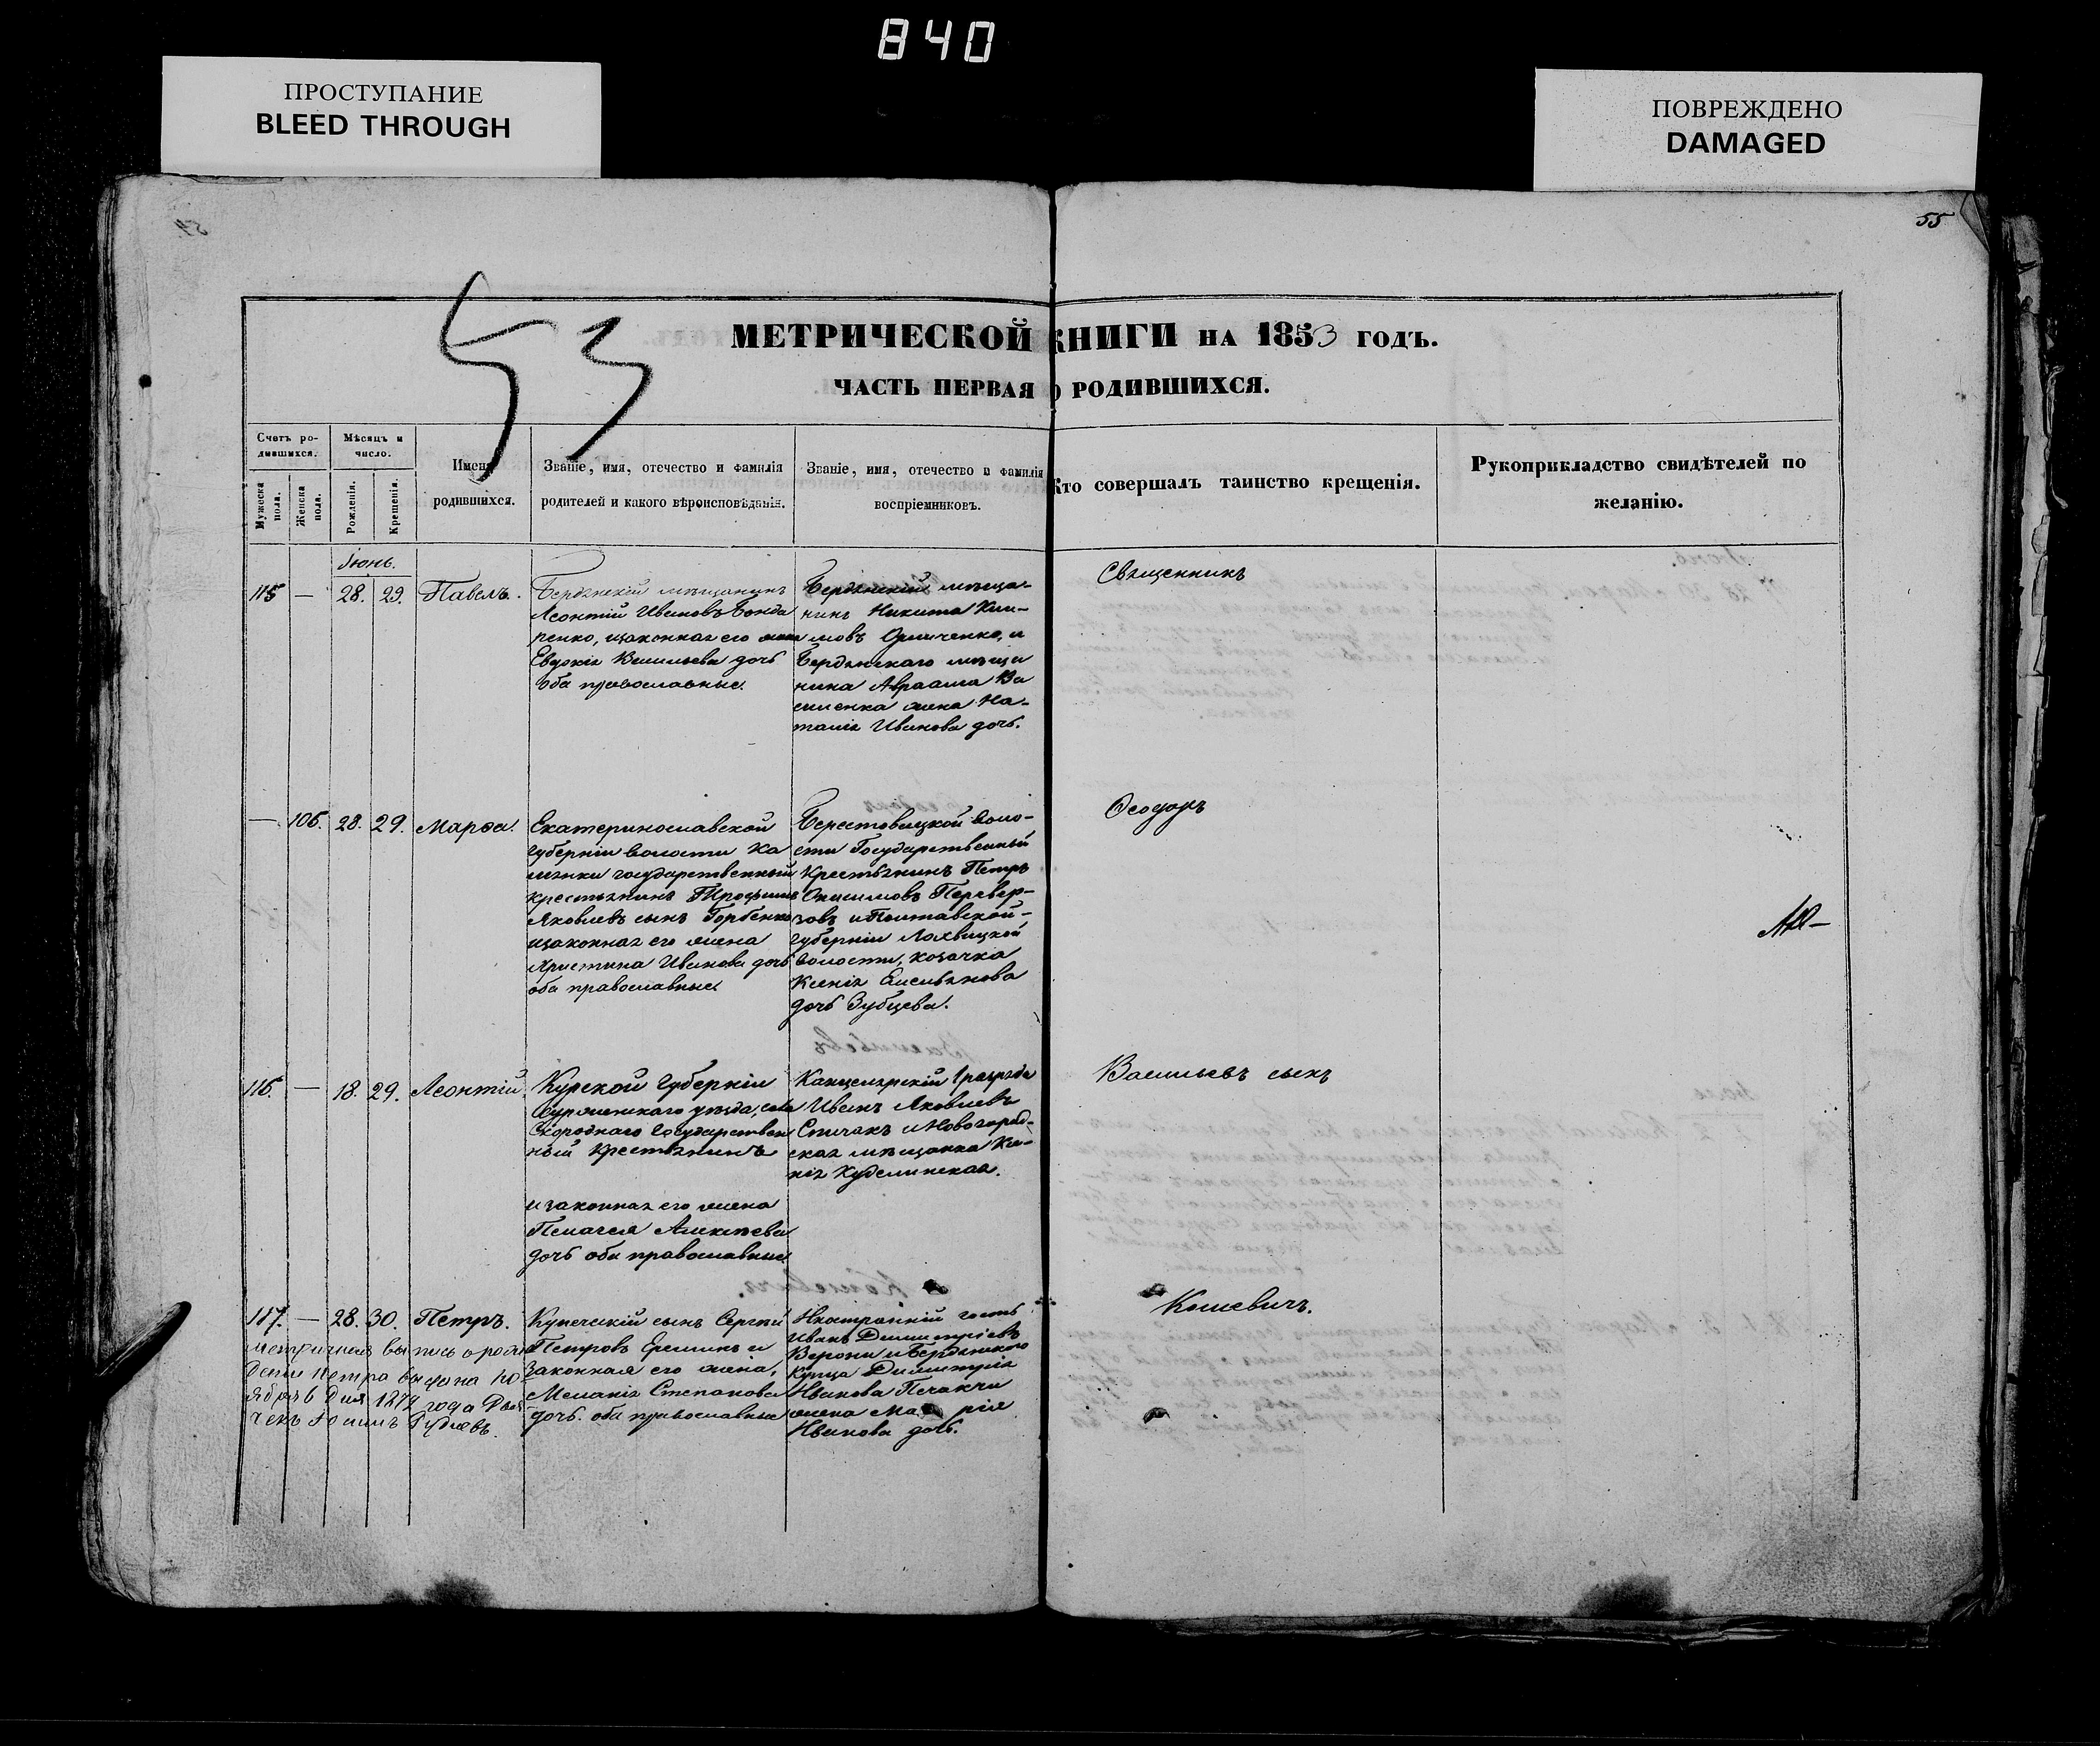 840
ПРОСТУПАНИЕ
BLEED THROUGH
ПОВРЕЖДЕНО
DAMAGED
55
53
МЕТРИЧЕСКОЙ КНИГИ НА 1853 ГОДЪ.
ЧАСТЬ ПЕРВАЯ О РОДИВШИХСЯ.
Счетъ ро-
дившихся.
Мужеска
пола.
Женска
пола.
Мѣсяцъ и
число.
Рожденія.
Крещенія.
Имена
родившихся.
Званіе, имя, отечество и фамилія
родителей и какого вѣроисповѣданія.
Званіе, имя, отечество и фамилія
воспріемниковъ.
Кто совершалъ таинство крещенія.
Рукоприкладство свидѣтелей по
желанію.
Іюнь.
115 — 28. 29. Павелъ.
Бердянскій мѣщанинъ
Леонтій Ивановъ Бонда
ренко, изаконная его жена
Евдокія Васильева дочь
оба православные.
Бердянскій мѣща-
нинъ Никита Кли-
мовъ и
Бердянскаго мѣща
нина Авраама Ва
силенка жена На-
талія Иванова дочь.
Священникъ
— 106. 28. 29. Марѳа.
Екатеринославской
губерніи волости Ка
менки государственный
крестьянинъ Трофимъ
Яковлевъ сынъ Горбенко
изаконная его жена
Христина Иванова дочь
оба православные.
Берестовецкой воло-
сти Государственный
Крестьянинъ Петръ
Онисимовъ Перевер-
зовъ и Полтавской
губерніи Лохвицкой
волости, козачка
Ксенія Емельянова
дочь Зубцева.
Ѳеодоръ
116. — 18. 29. Леонтій.
Курской Губерніи
уѣзда, села
Скороднаго Государствен
ный Крестьянинъ
изаконная его жена
Пелагея Алексѣева
дочь оба православные.
Канцелярскій 1 разряда
Иванъ Яковлевъ
Спичакъ и Новоград-
ская мѣщанка Ксе-
нія Куделинская.
Васильевъ сынъ
117. — 28. 30. Петръ.
метрическая выпись о рож
деніи Петра выдана но-
ября 6 дня 1872 года
Купеческій сынъ Сергѣй
Петровъ Еремин и
законная его жена,
Меланія Степанова
дочь. оба православные
Иностранній гость
Иванъ Димитріевъ
Верони и Бердянского
купца Димитрія
Иванова
жена Марія
Иванова дочь.
Кошевичъ.